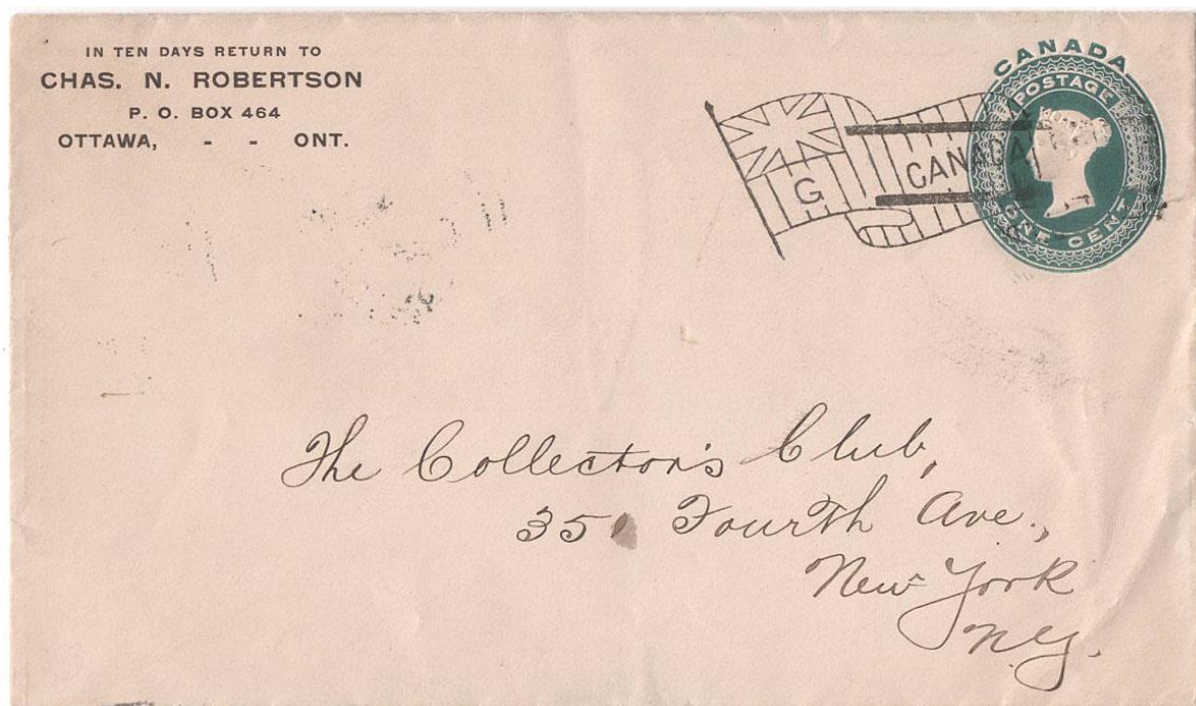 IN TEN DAYS RETURN TO
CHAS. N. ROBERTSON
P. O. BOX 464
OTTAWA, - - ONT.
CANADA
POSTAGE
ONE CENT
G
CANADA
The Collector's Club,
351 Fourth Ave.,
New York
N.Y.